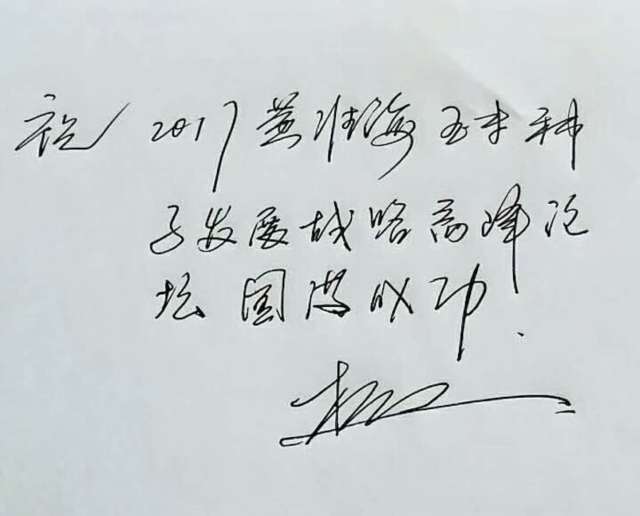 祝 2017 黄淮海玉米种
子发展战略高峰论
坛 圆满成功.